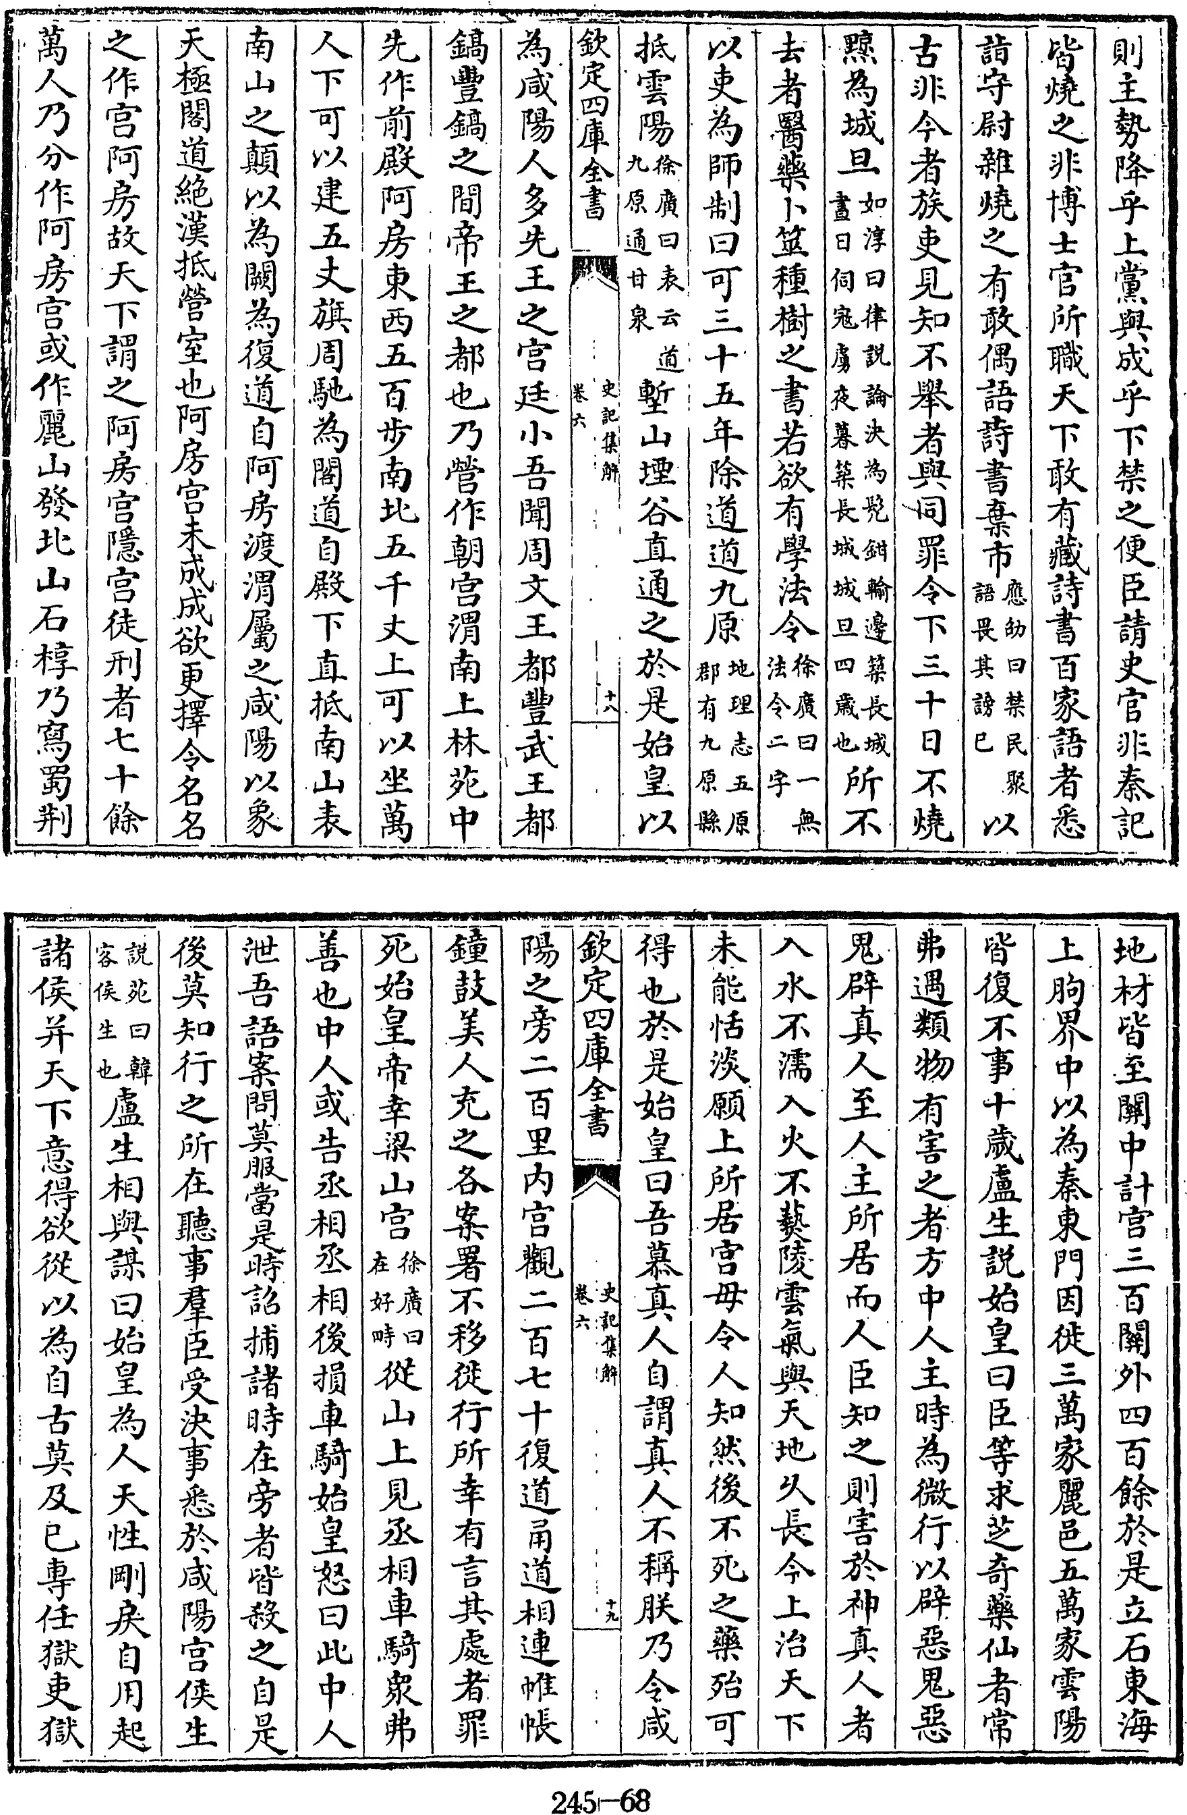 則主勢降乎上黨與成乎下禁之便臣請史官非秦記
皆燒之非博士官所職天下敢有藏詩書百家語者悉
詣守尉雜燒之有敢偶語詩書棄市應劭曰禁民聚語畏其謗已以
古非今者族吏見知不舉者與同罪令下三十日不燒
黥為城旦如淳曰律說論決為髠鉗輸邊築長城晝日伺寇虜夜暮築長城城旦四歲也所不
去者醫藥卜筮種樹之書若欲有學法令徐廣曰一無法令二字
以吏為師制曰可三十五年除道道九原地理志五原郡有九原縣
抵雲陽徐廣曰表云道九原通甘泉塹山堙谷直通之於是始皇以
欽定四庫全書
史記集解
卷六
十八
為咸陽人多先王之宮廷小吾聞周文王都豐武王都
鎬豐鎬之間帝王之都也乃營作朝宮渭南上林苑中
先作前殿阿房東西五百步南北五千丈上可以坐萬
人下可以建五丈旗周馳為閣道自殿下直抵南山表
南山之顛以為闕為復道自阿房渡渭屬之咸陽以象
天極閣道絶漢抵營室也阿房宮未成成欲更擇令名名
之作宮阿房故天下謂之阿房宮隱宮徒刑者七十餘
萬人乃分作阿房宮或作麗山發北山石椁乃寫蜀荆
地材皆至關中計宮三百關外四百餘於是立石東海
上朐界中以為秦東門因徙三萬家麗邑五萬家雲陽
皆復不事十歲盧生説始皇曰臣等求芝奇藥仙者常
弗遇類物有害之者方中人主時為微行以辟惡鬼惡
鬼辟真人至人主所居而人臣知之則害於神真人者
入水不濡入火不爇陵雲氣與天地久長今上治天下
未能恬淡願上所居宮毋令人知然後不死之藥殆可
得也於是始皇曰吾慕真人自謂真人不稱朕乃令咸
欽定四庫全書
史記集解
卷六
十九
陽之旁二百里内宮觀二百七十復道甬道相連帷帳
鐘鼓美人充之各案署不移徙行所幸有言其處者罪
死始皇帝幸梁山宮徐廣曰在好畤從山上見丞相車騎衆弗
善也中人或告丞相丞相後損車騎始皇怒曰此中人
泄吾語案問莫服當是時詔捕諸時在旁者皆殺之自是
後莫知行之所在聽事羣臣受決事悉於咸陽宮侯生
説苑曰韓客侯生也盧生相與謀曰始皇為人天性剛戾自用起
諸侯并天下意得欲從以為自古莫及已專任獄吏獄
245-68